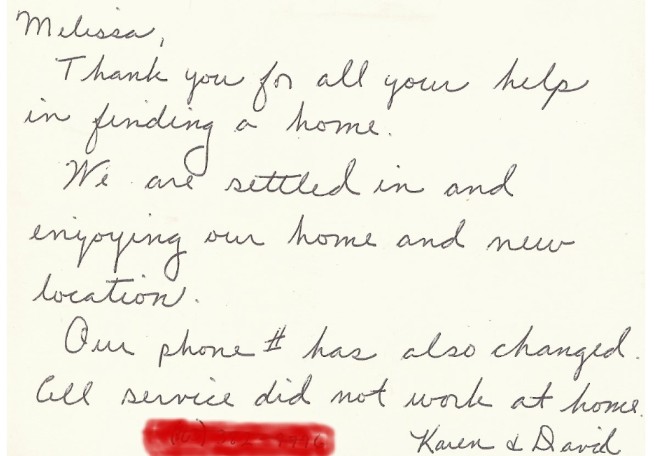 Melissa,
Thank you for all your help
in finding a home.
We are settled in and
enjoying our home and new
location.
Our phone # has also changed.
Cell service did not work at home.
Karen & David